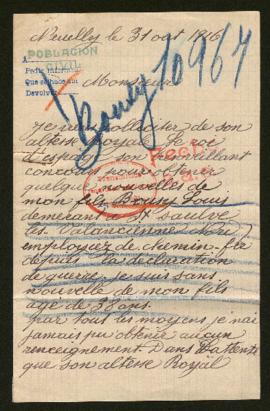 Neuilly le 31 oct 1916
POBLACIÓN
CIVIL
A
Pedir informes
Que se hace aut
Devolver
Monsieur
Bousy 10967
Je viens solliciter de son
altesse Royal Le roi
d'espagne son bienveillant
concours pour obtenir
quelque nouvelles de
mon fils Bousy Louis
demeurant a St sauve
les Valencienne Nord
employez de chemin-fer
depuis la déclaration
de guerre je suis sans
nouvelle de mon fils
age de 38 ans.
par tous les moyens je n'ai
jamais pu obtenir aucun
renseignement. Dans l'attente
que son altesse Royal